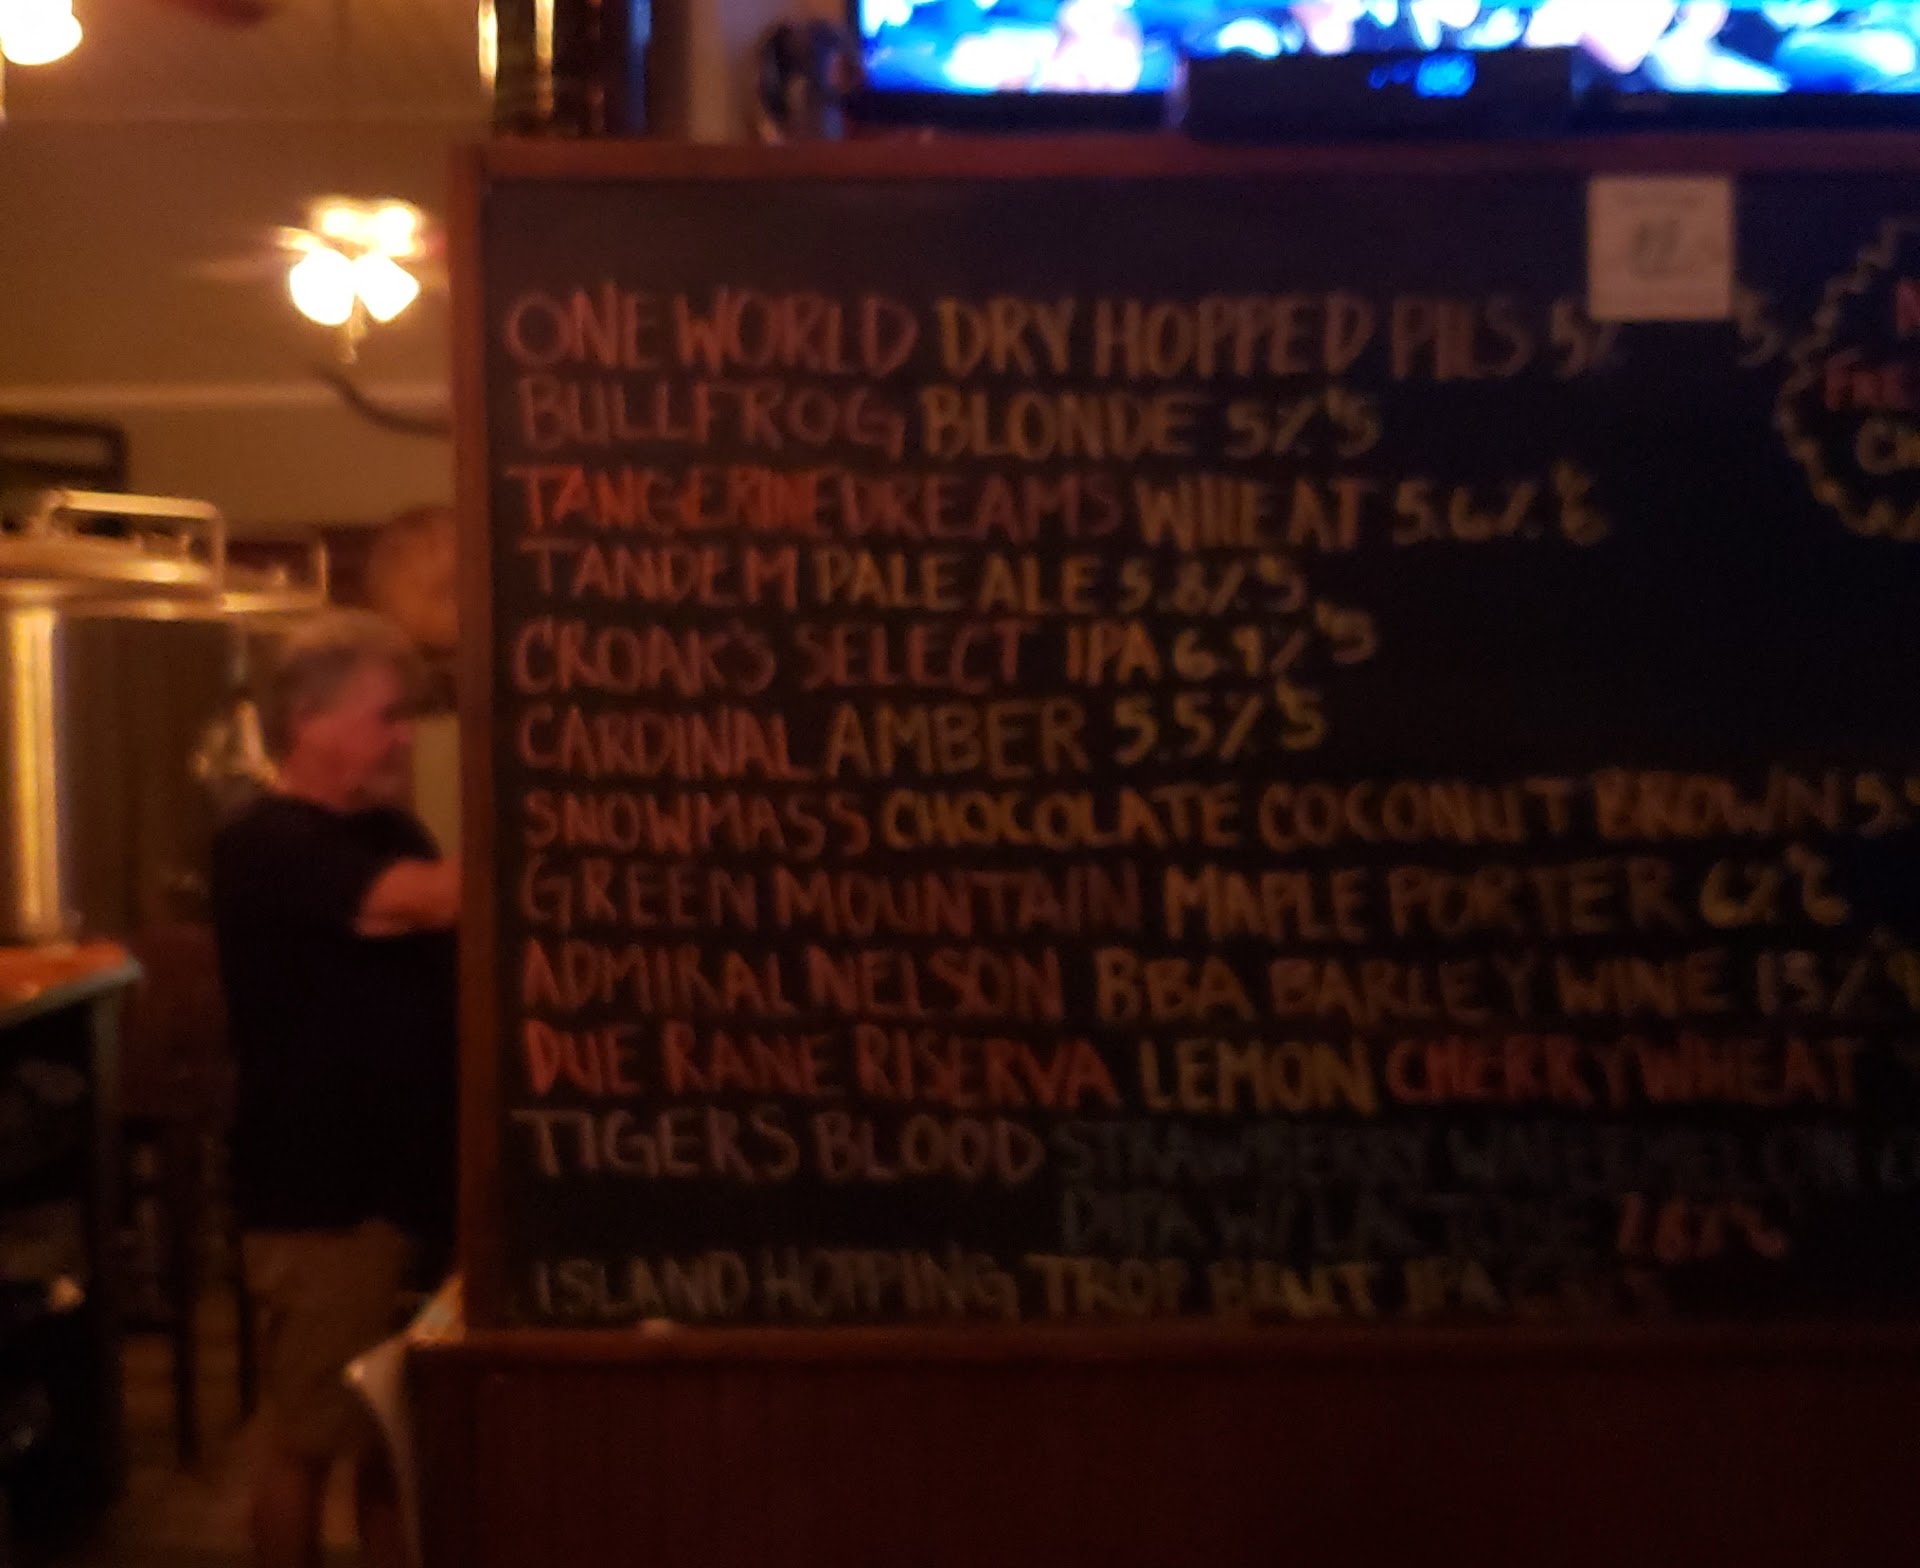 ONE WORLD DRY HOPPED PILS 5%
BULLFROG BLONDE 5% $5
TANGERINE DREAMS WHEAT 5.6% $6
TANDEM PALE ALE 5.8% $5
CROAK'S SELECT IPA 6.9% $5
CARDINAL AMBER 5.5% $5
SNOWMASS CHOCOLATE COCONUT BROWN 5.5
GREEN MOUNTAIN MAPLE PORTER 6% $6
ADMIRAL NELSON BBA BARLEY WINE 13%
DUE RANE RISERVA LEMON CHERRY WHEAT
TIGERS BLOOD STRAWBERRY WATERMELON
DIPA W/ LACTOSE 7.8% $6
ISLAND HOPPING TROP BRUT IPA